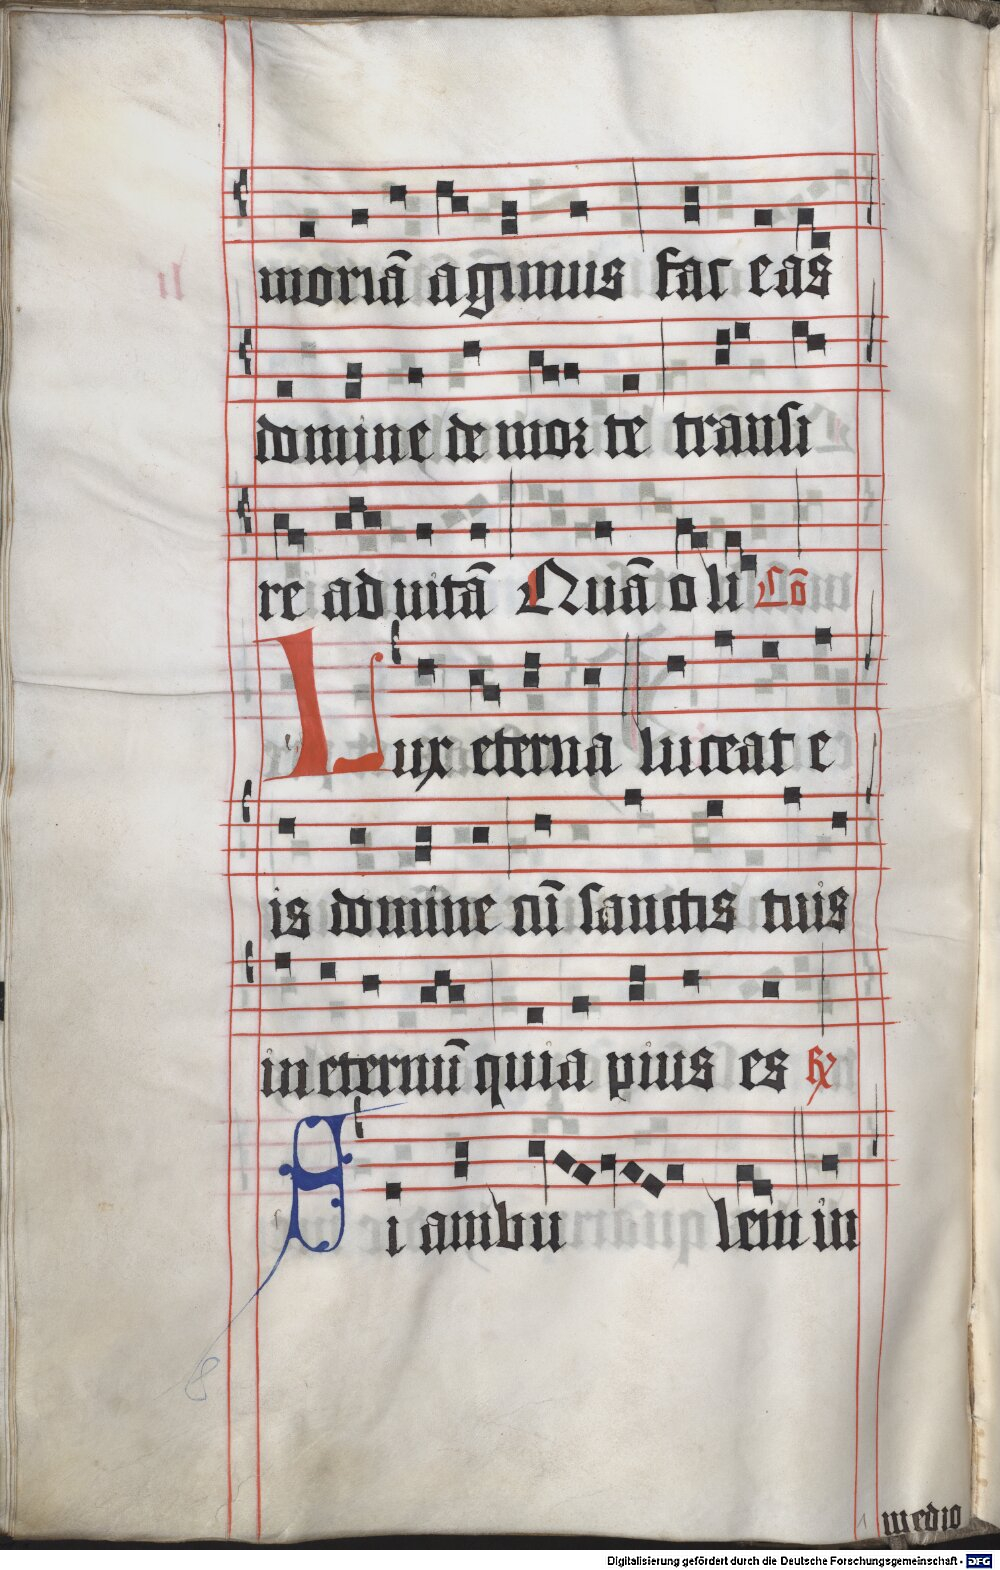 moriā agimus fac eas
domine de morte transi
re ad uitā Quā oli Cō
Lux eterna luceat e
is domine cū sanctis tuis
in eternū quia pius es ℟
Si ambulem in
medio
Digitalisierung gefördert durch die Deutsche Forschungsgemeinschaft - DFG